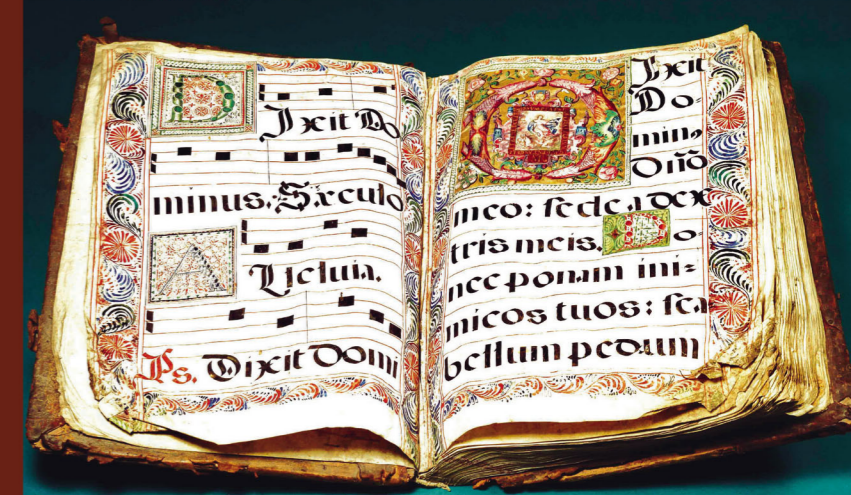 Dixit Do
minus. Sæculo
Alleluia.
Ps. Dixit Domi
Dixit
Do-
min9
Dño
meo: sede a dex
tris meis. Do-
nec ponam ini-
micos tuos: sca
bellum pedum